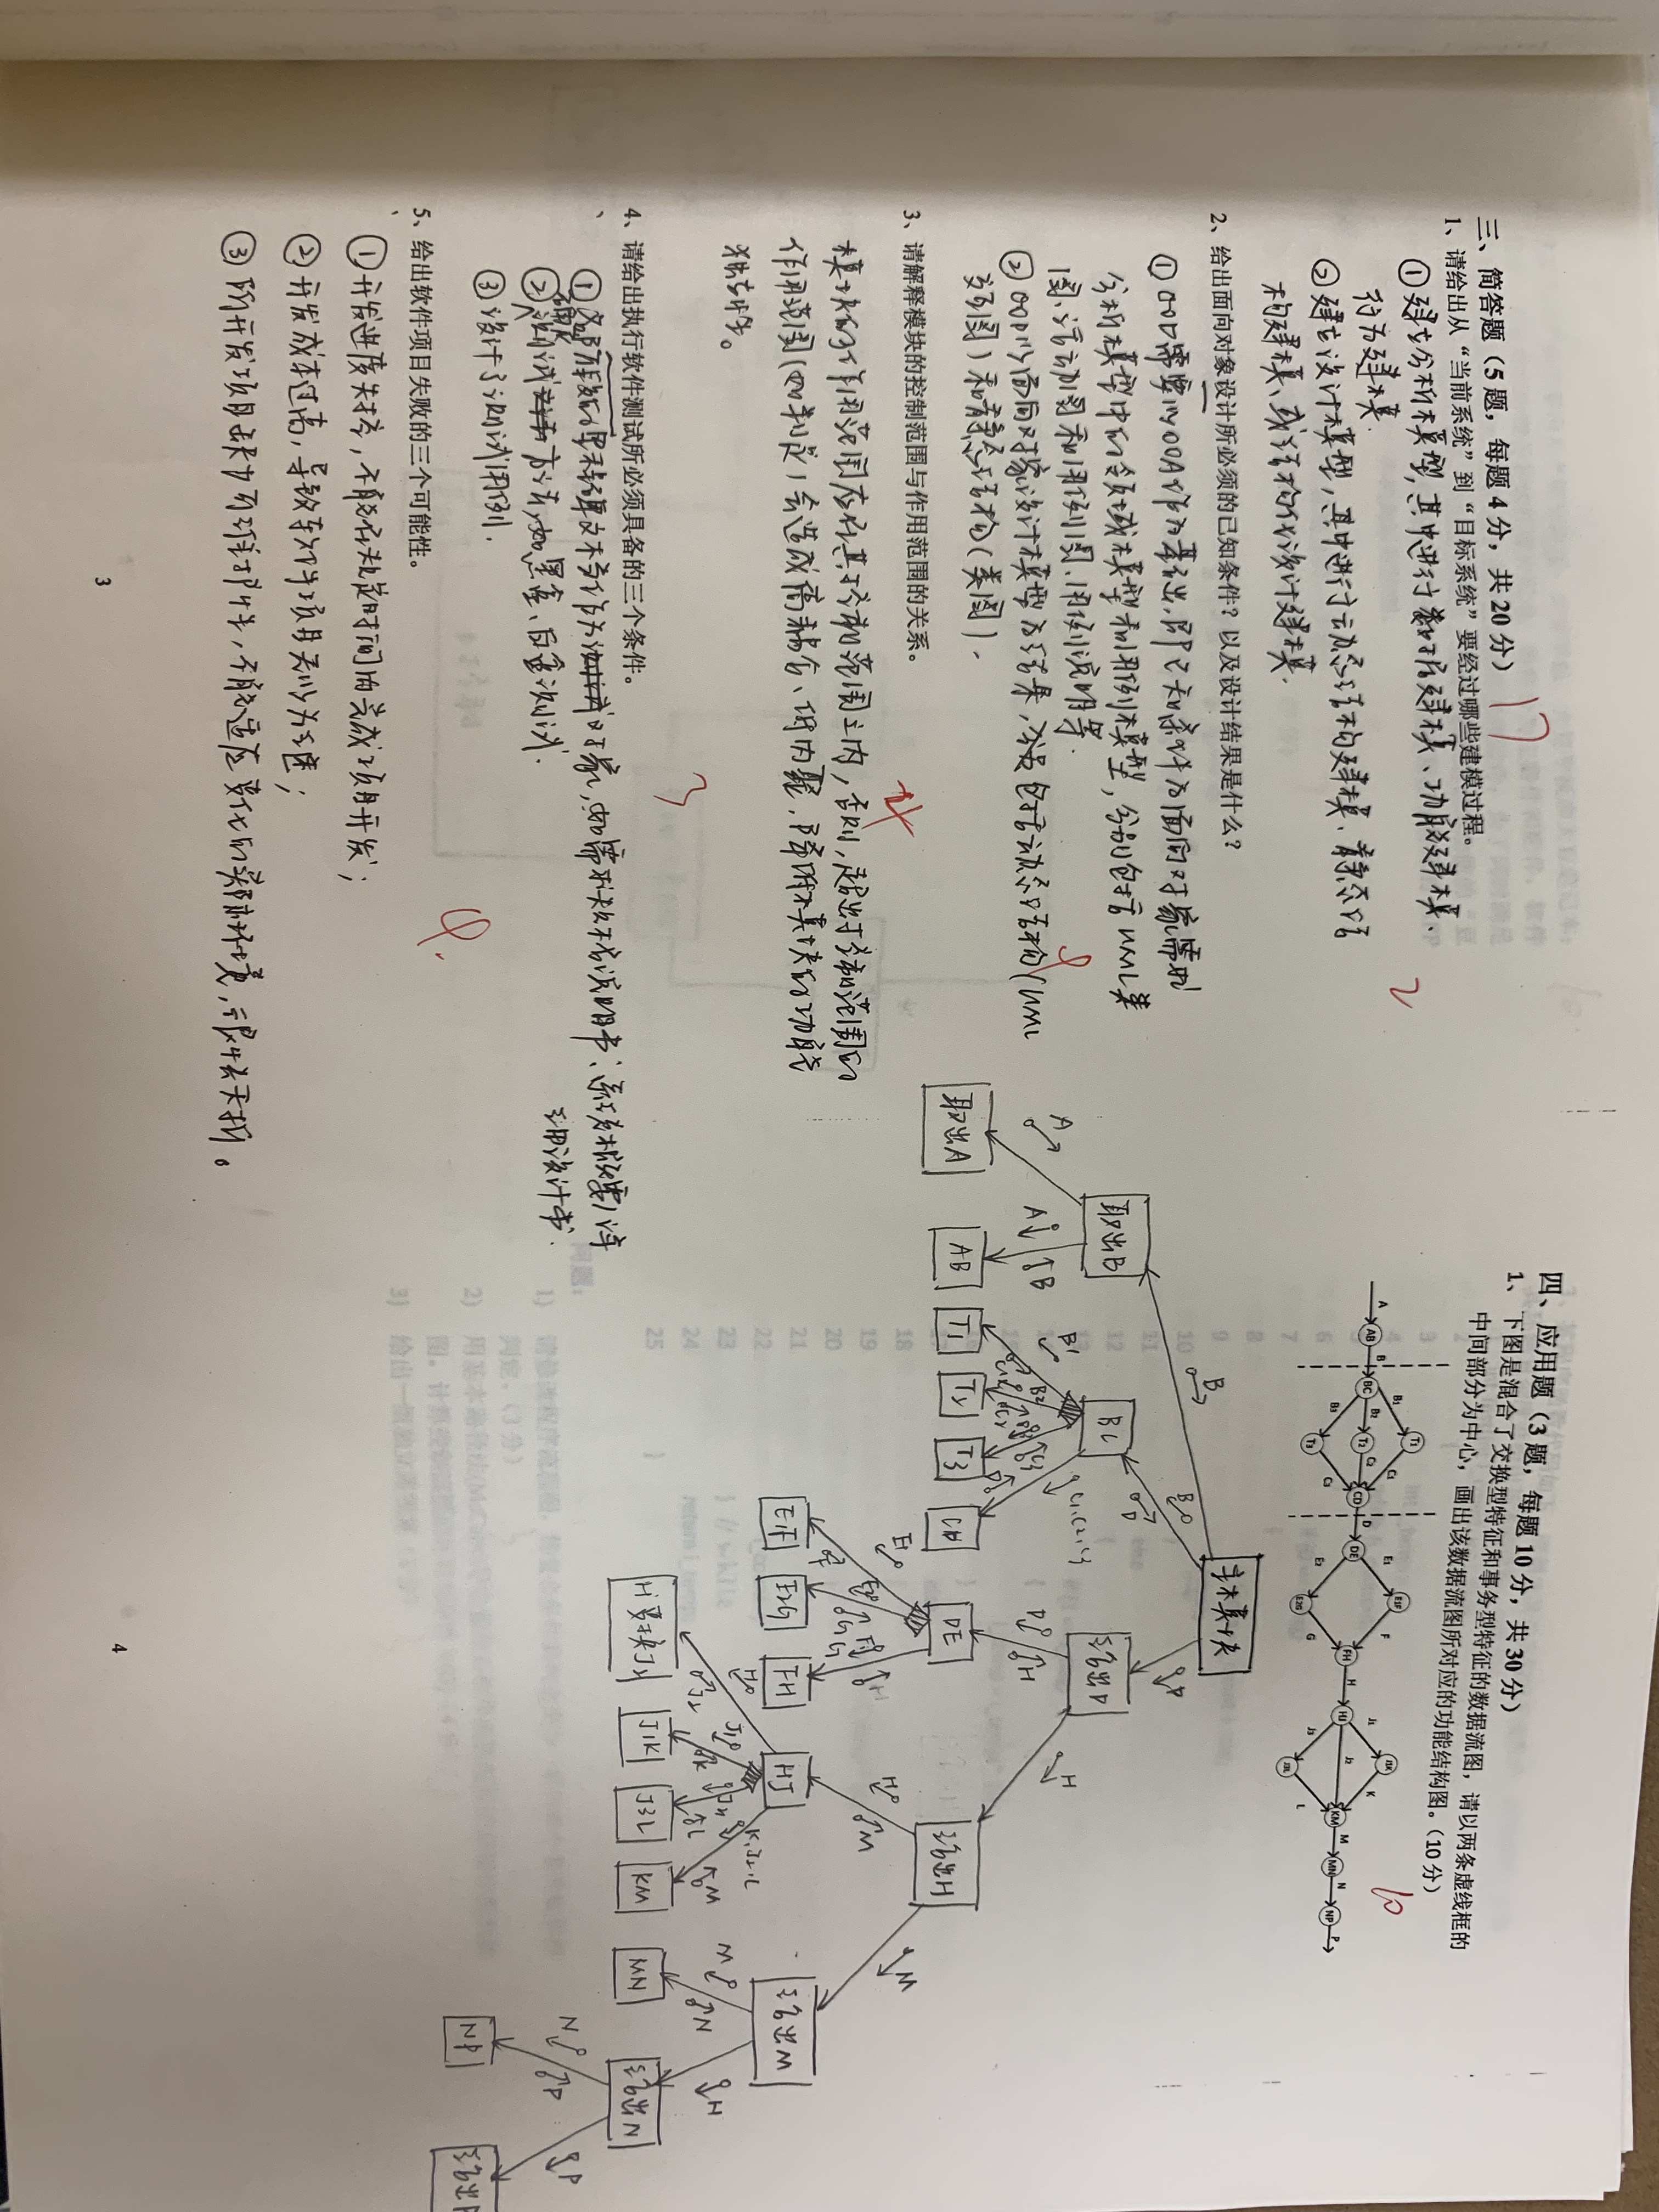 三、简答题（5题，每题4分，共20分）
17
1、请给出从“当前系统”到“目标系统”要经过哪些建模过程。
①建立分析模型，其中进行数据建模、功能建模、
行为建模.
2
②建立设计模型，其中进行动态结构建模、静态结
构建模、或结构化设计建模.
2、给出面向对象设计所必须的已知条件？以及设计结果是什么？
①OOD需要以OOA作为基础，即已知条件为面向对象需求
分析模型中的领域模型和用例模型，分别包括UML类
图、活动图和用例图、用例说明等.
②OOD以面向对象设计模型为结果，分别包括动态结构(UML
交互图）和静态结构(类图).
3、请解释模块的控制范围与作用范围的关系。
4
模块的作用范围应在其控制范围之内，否则，超出控制范围的
作用范围(如判定)会造成高耦合、低内聚，降低模块的功能
独立性。
3
4、请给出执行软件测试所必须具备的三个条件。
①各阶段的里程碑文档作为对象，如需求规格说明书；系统概要/详
细设计书.
②确定测试方法，如黑盒、白盒测试.
③设计了测试用例.
4.
5、给出软件项目失败的三个可能性。
①开发进度失控，不能在规定时间内完成项目开发；
②开发成本过高，导致软件项目无以为继；
③所开发项目缺少可维护性，不能适应变化的实际环境，很快夭折。
3
四、应用题（3题，每题10分，共30分）
1、下图是混合了交换型特征和事务型特征的数据流图，请以两条虚线框的
中间部分为中心，画出该数据流图所对应的功能结构图。（10分）
10
T1 E1F J1K
B1 C1 E1 F J1 K
A AB B BC B2 T2 C2 CD D DE FH H HJ J2 KM M MN N NP P
B3 C3 E2 G J3 L
T3 E2G J3L
主模块
B B D D
取出B BC 给出D
A A B B1 C1 B2 C2 C3 C1,C2,C3 D D H H
取出A AB T1 T2 T3 CD DE 给出H
E1 F E2 G F G H H M M
E1F E2G FH HJ 给出M
H J2 J1 K J3 L K,J2,L M M N N
H变换J2 J1K J3L KM MN 给出N
N P P
NP 给出P
4